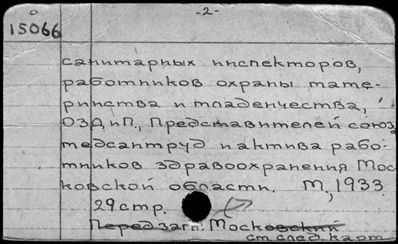 -2-
15066
санитарных инспекторов,
работников охраны мате-
ринства и младенчества,
ОЗД и П., Представителей союз
медсантруд и актива рабо-
тников здравоохранения Мос-
ковской области. М, 1933
29 стр.
Перед загл.: Московский
см. след. карт.